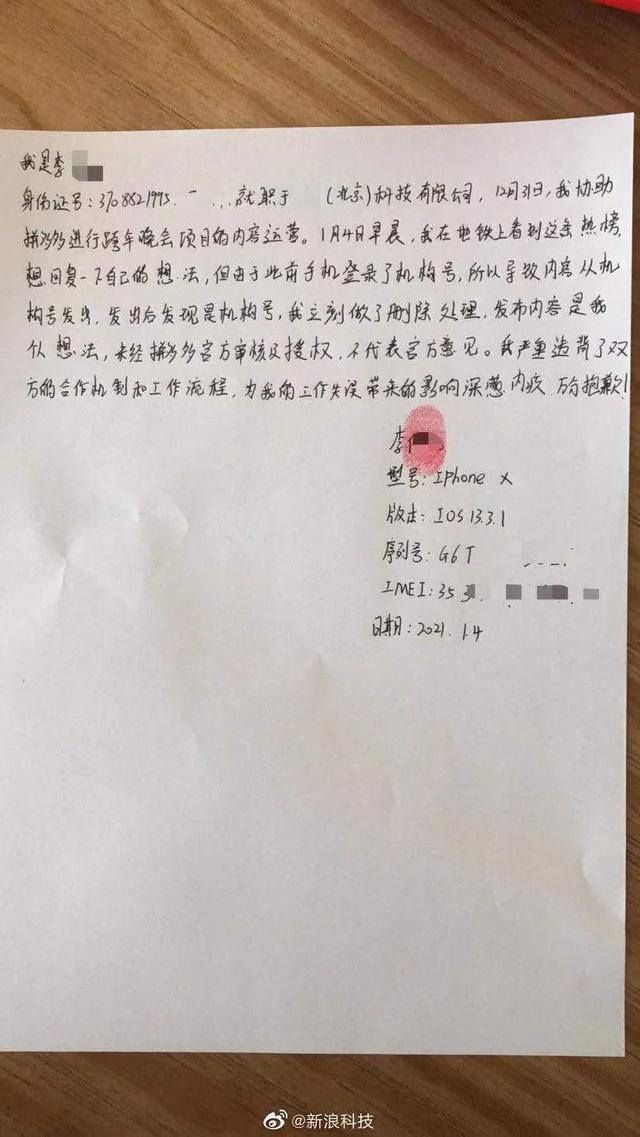 我是李
身份证号:3708821995. 就职于 (北京)科技有限公司,12月31日,我协助
拼多多进行跨年晚会项目的内容运营。1月4日早晨,我在地铁上看到这条热榜,
想回复一下自己的想法,但由于此前手机登录了机构号,所以导致内容从机
构号发出,发出后发现是机构号,我立刻做了删除处理,发布内容是我
想法,未经拼多多官方审核及授权,不代表官方意见。我严重违背了双
方的合作机制和工作流程,为我的工作失误带来的影响深感内疚 万分抱歉!
李
型号:Iphone X
版本:IOS 13.3.1
序列号:G6T
IMEI:353
日期:2021.1.4
@新浪科技